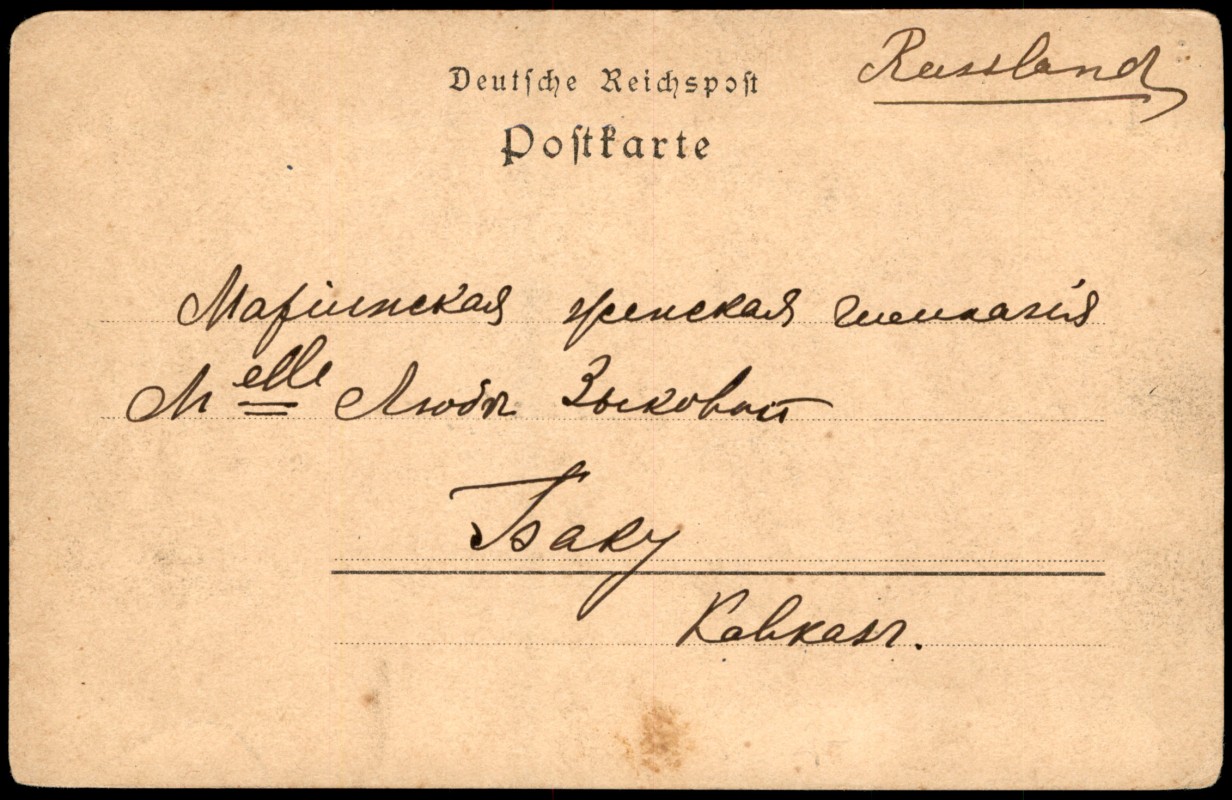 Russland
Deutsche Reichspost
Postkarte
Маріинская женская гимназія
M elle Любѣ Зыковой
Баку
Кавказъ.